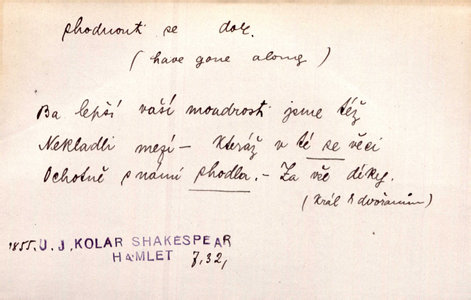 shodnouti se dok.
(have gone along)
Ba lepší vaší moudrosti jsme též
Nekladli mezí – kteráž v té se věci
Ochotně s námi shodla. – Za vše díky.
(Král k dvořanům)
1855. J. J. KOLAR SHAKESPEAR
HAMLET 7, 32,